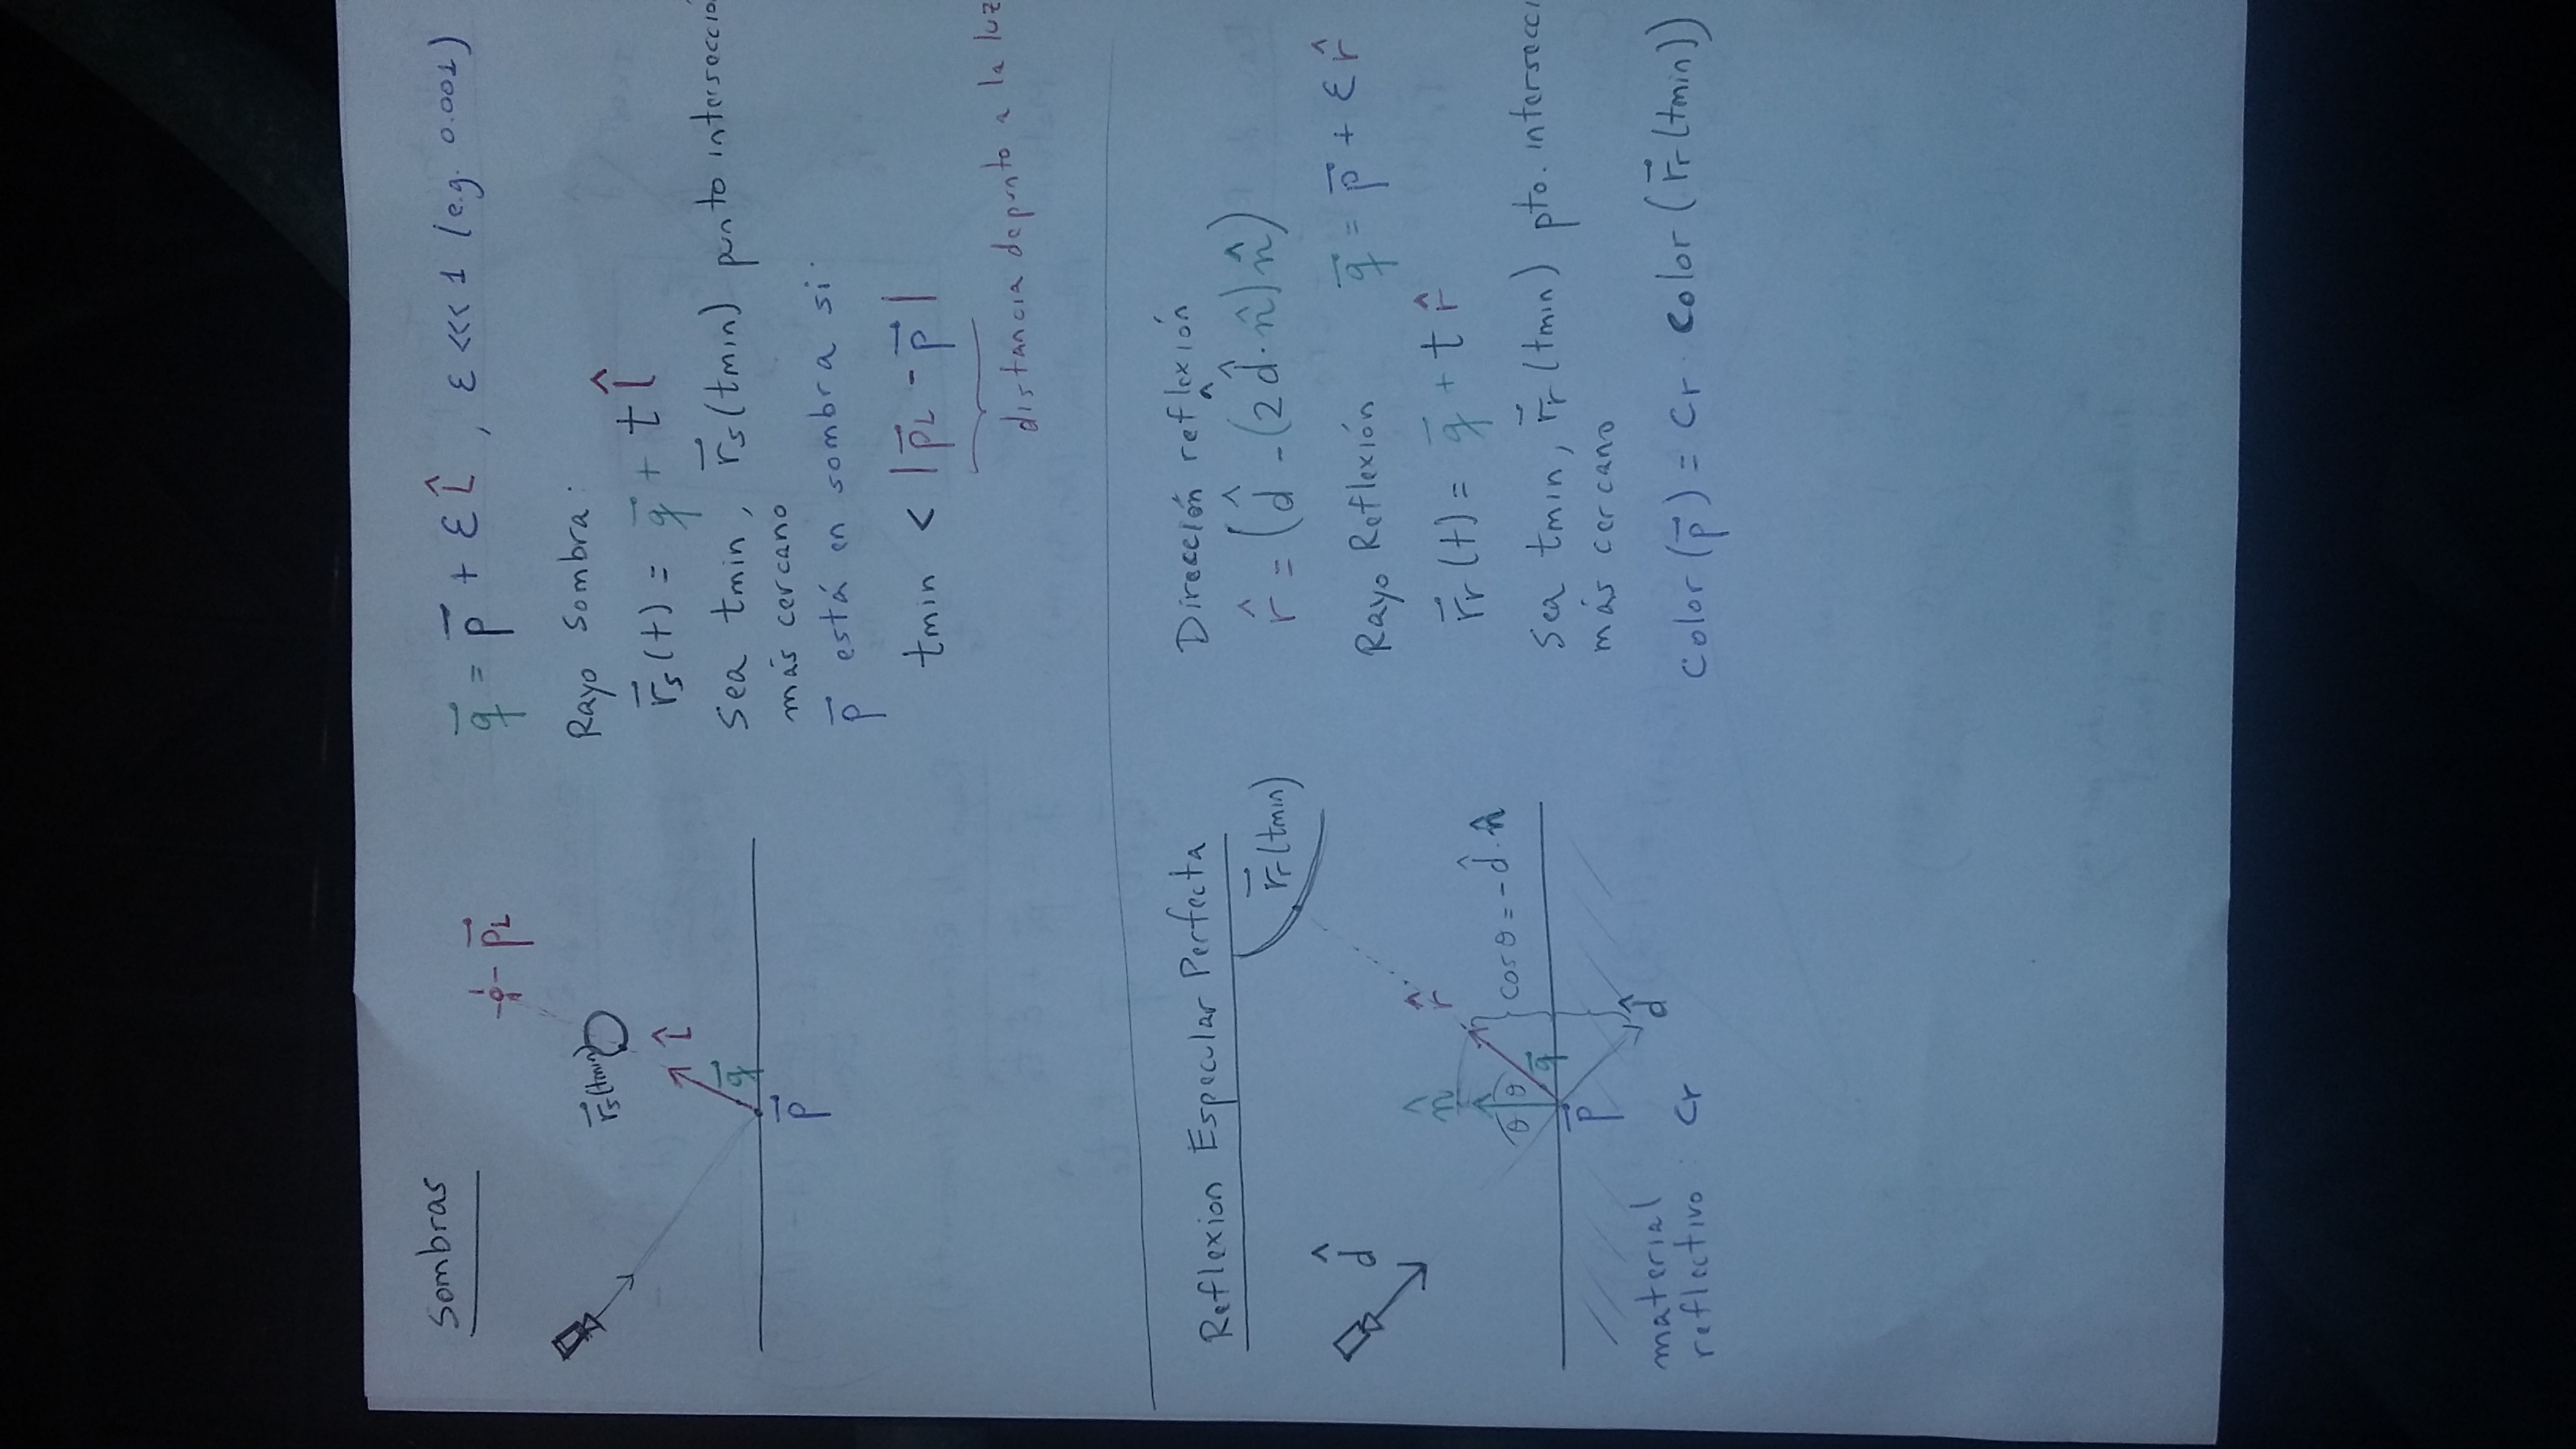 Sombras
p⃗L
r⃗s(tmin)
l̂
q⃗
p⃗
q⃗ = p⃗ + εl̂ , ε <<< 1 (e.g. 0.001)
Rayo Sombra:
r⃗s(t) = q⃗ + t l̂
Sea tmin, r⃗s(tmin) punto intersecció
más cercano
p⃗ está en sombra si:
tmin < |p⃗L - p⃗|
distancia de punto a la luz
Reflexion Especular Perfecta
r⃗r(tmin)
d̂
n̂
r̂
θ θ
q⃗
cosθ = -d̂·n̂
p⃗
d̂
material
reflectivo : Cr
Dirección reflexión
r̂ = (d̂ - (2d̂·n̂)n̂)
Rayo Reflexión q⃗ = p⃗ + εr̂
r⃗r(t) = q⃗ + t r̂
Sea tmin, r⃗r(tmin) pto. intersecci
más cercano
Color(p⃗) = Cr · Color(r⃗r(tmin))